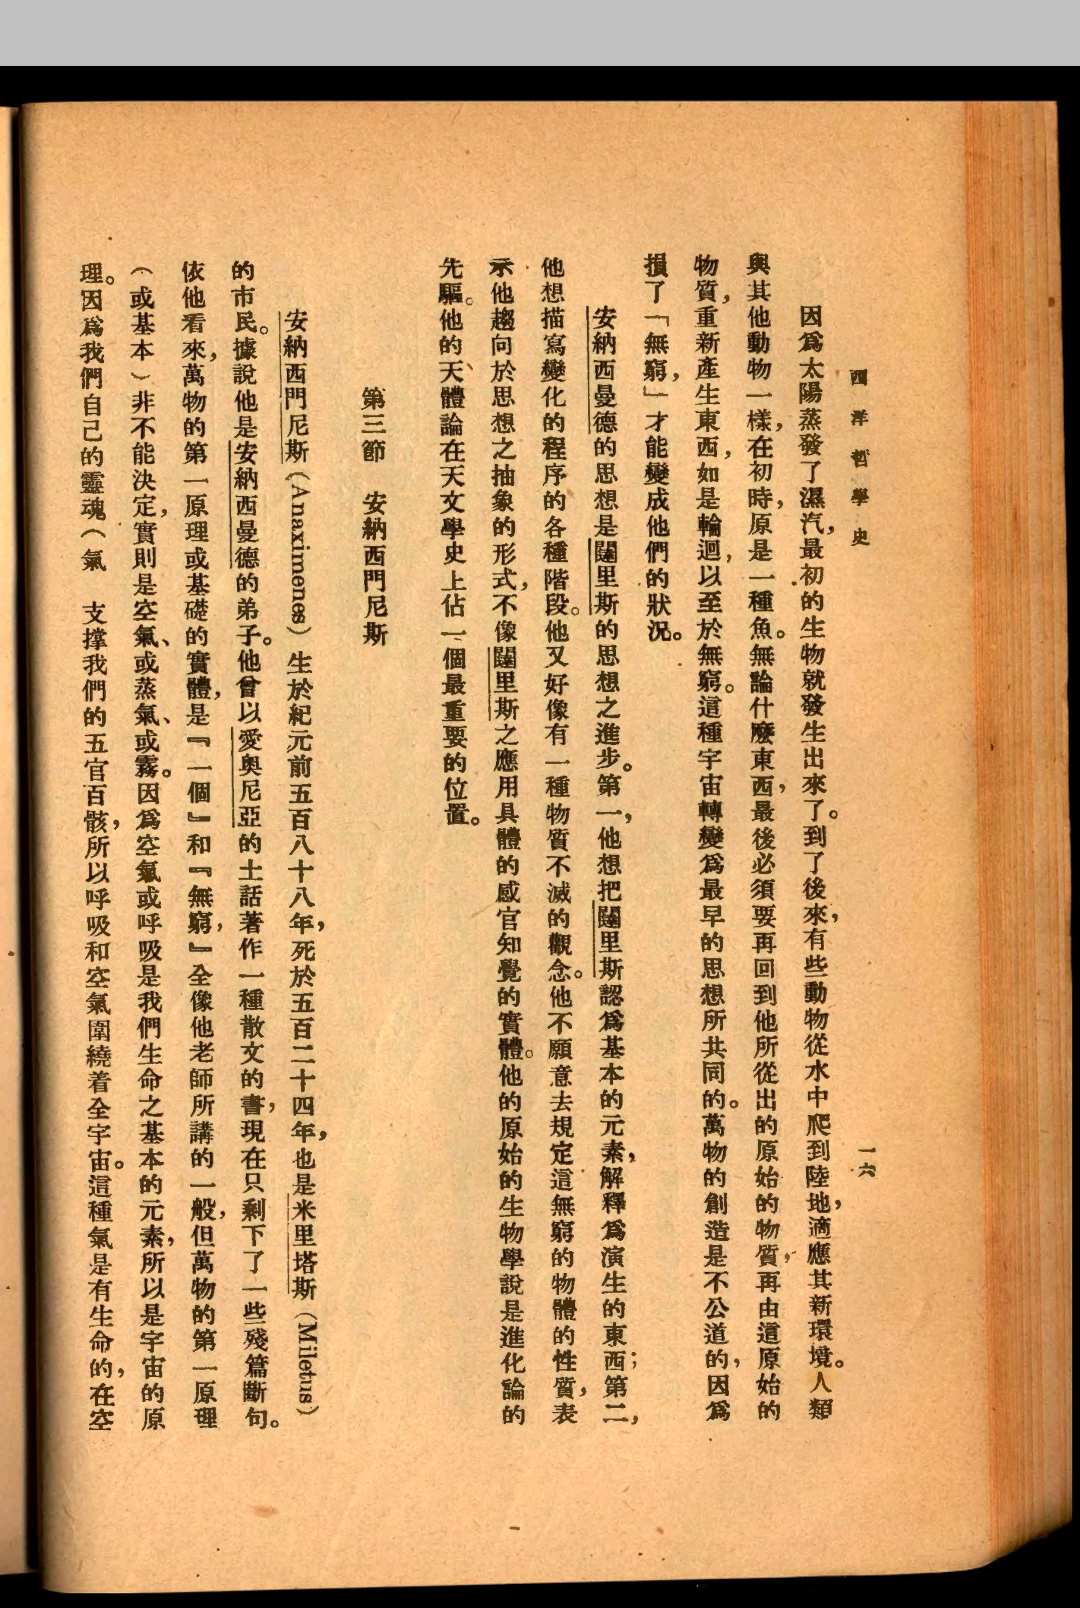 西洋哲學史
一六
因爲太陽蒸發了濕汽，最初的生物就發生出來了。到了後來，有些動物從水中爬到陸地，適應其新環境。人類
與其他動物一樣，在初時，原是一種魚。無論什麼東西，最後必須要再回到他所從出的原始的物質，再由這原始的
物質，重新產生東西，如是輪迴，以至於無窮。這種宇宙轉變爲最早的思想所共同的。萬物的創造是不公道的，因爲
損了「無窮，」才能變成他們的狀況。
安納西曼德的思想是闥里斯的思想之進步。第一，他想把闥里斯認爲基本的元素，解釋爲演生的東西；第二，
他想描寫變化的程序的各種階段。他又好像有一種物質不滅的觀念。他不願意去規定這無窮的物體的性質，表
示他趨向於思想之抽象的形式，不像闥里斯之應用具體的感官知覺的實體。他的原始的生物學說是進化論的
先驅。他的天體論在天文學史上佔一個最重要的位置。
第三節　安納西門尼斯
安納西門尼斯（Anaximenes）生於紀元前五百八十八年，死於五百二十四年，也是米里塔斯（Miletus）
的市民。據說他是安納西曼德的弟子。他曾以愛奧尼亞的土話著作一種散文的書，現在只剩下了一些殘篇斷句。
依他看來，萬物的第一原理或基礎的實體，是『一個』和『無窮，』全像他老師所講的一般，但萬物的第一原理
（或基本）非不能決定，實則是空氣、或蒸氣、或霧。因爲空氣或呼吸是我們生命之基本的元素，所以是宇宙的原
理。因爲我們自己的靈魂（氣　支撐我們的五官百骸，所以呼吸和空氣圍繞着全宇宙。這種氣是有生命的，在空